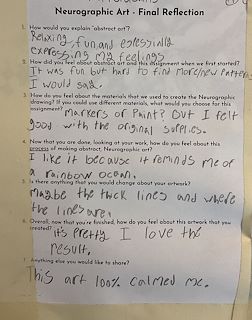 Neurographic Art - Final Reflection
1. How would you explain "abstract art"?
Relaxing, fun, and
expressing my feelings
2. How did you feel about abstract art and this assignment when we first started?
It was fun but hard to find more/new patterns
I would say.
3. How do you feel about the materials that we used to create the Neurographic
drawing? If you could use different materials, what would you choose for this
assignment? markers or Paint? But I felt
good with the original supplies.
4. Now that you are done, looking at your work, how do you feel about this
process of making abstract, Neurographic art?
I like it because it reminds me of
a rainbow ocean.
5. Is there anything that you would change about your artwork?
Maybe the thick lines and where
the lines are.
6. Overall, now that you've finished, how do you feel about this artwork that you
created? It's pretty I love the
result.
7. Anything else you would like to share?
This art 100% calmed me.